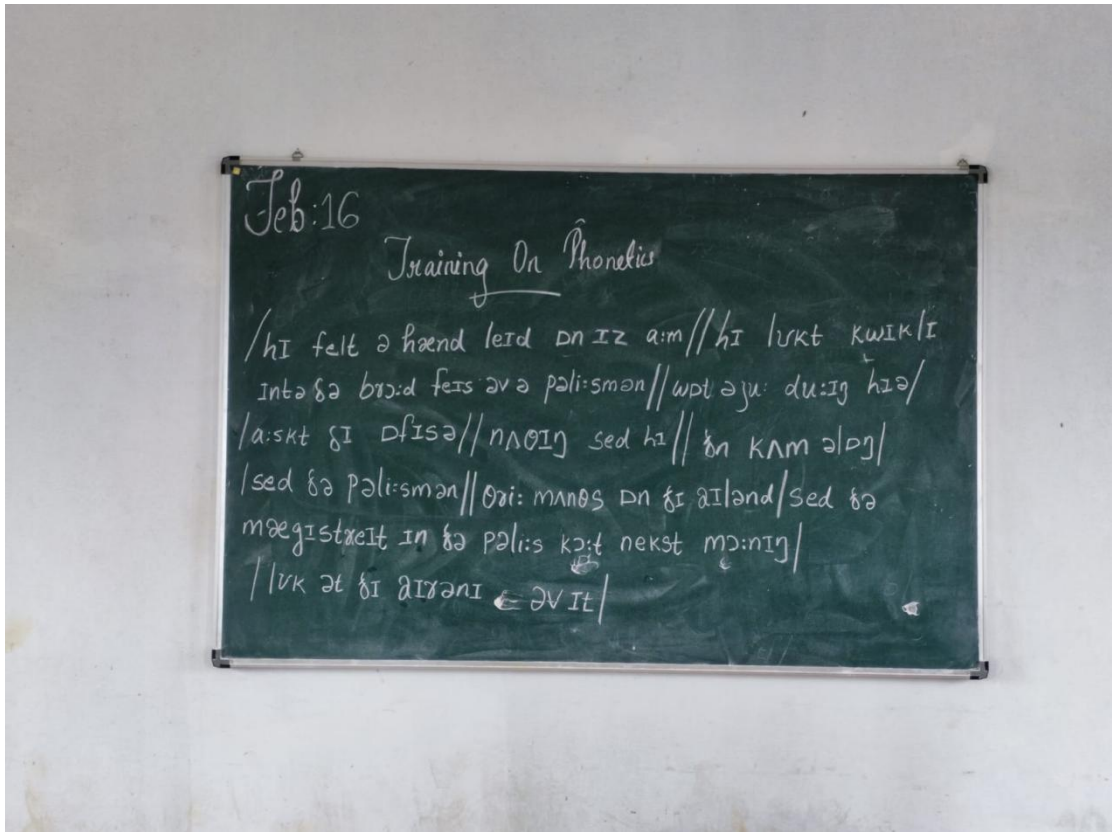 Feb:16
Training On Phonetics
/hɪ felt ə hænd leɪd ɒn ɪz a:m//hɪ lʊkt kwɪklɪ
ɪntə ðə brɔ:d feɪs əv ə pəli:smən//wɒt əju: du:ɪŋ hɪə/
/a:skt ðɪ ɒfɪsə//nʌθɪŋ sed hɪ//ðn kʌm əlɒŋ/
/sed ðə pəli:smən//θri: mʌnθs ɒn ðɪ aɪlənd/sed ðə
mægɪstreɪt ɪn ðə pəli:s kɔ:t nekst mɔ:nɪŋ/
//lʊk ət ðɪ aɪrənɪ əv ɪt/